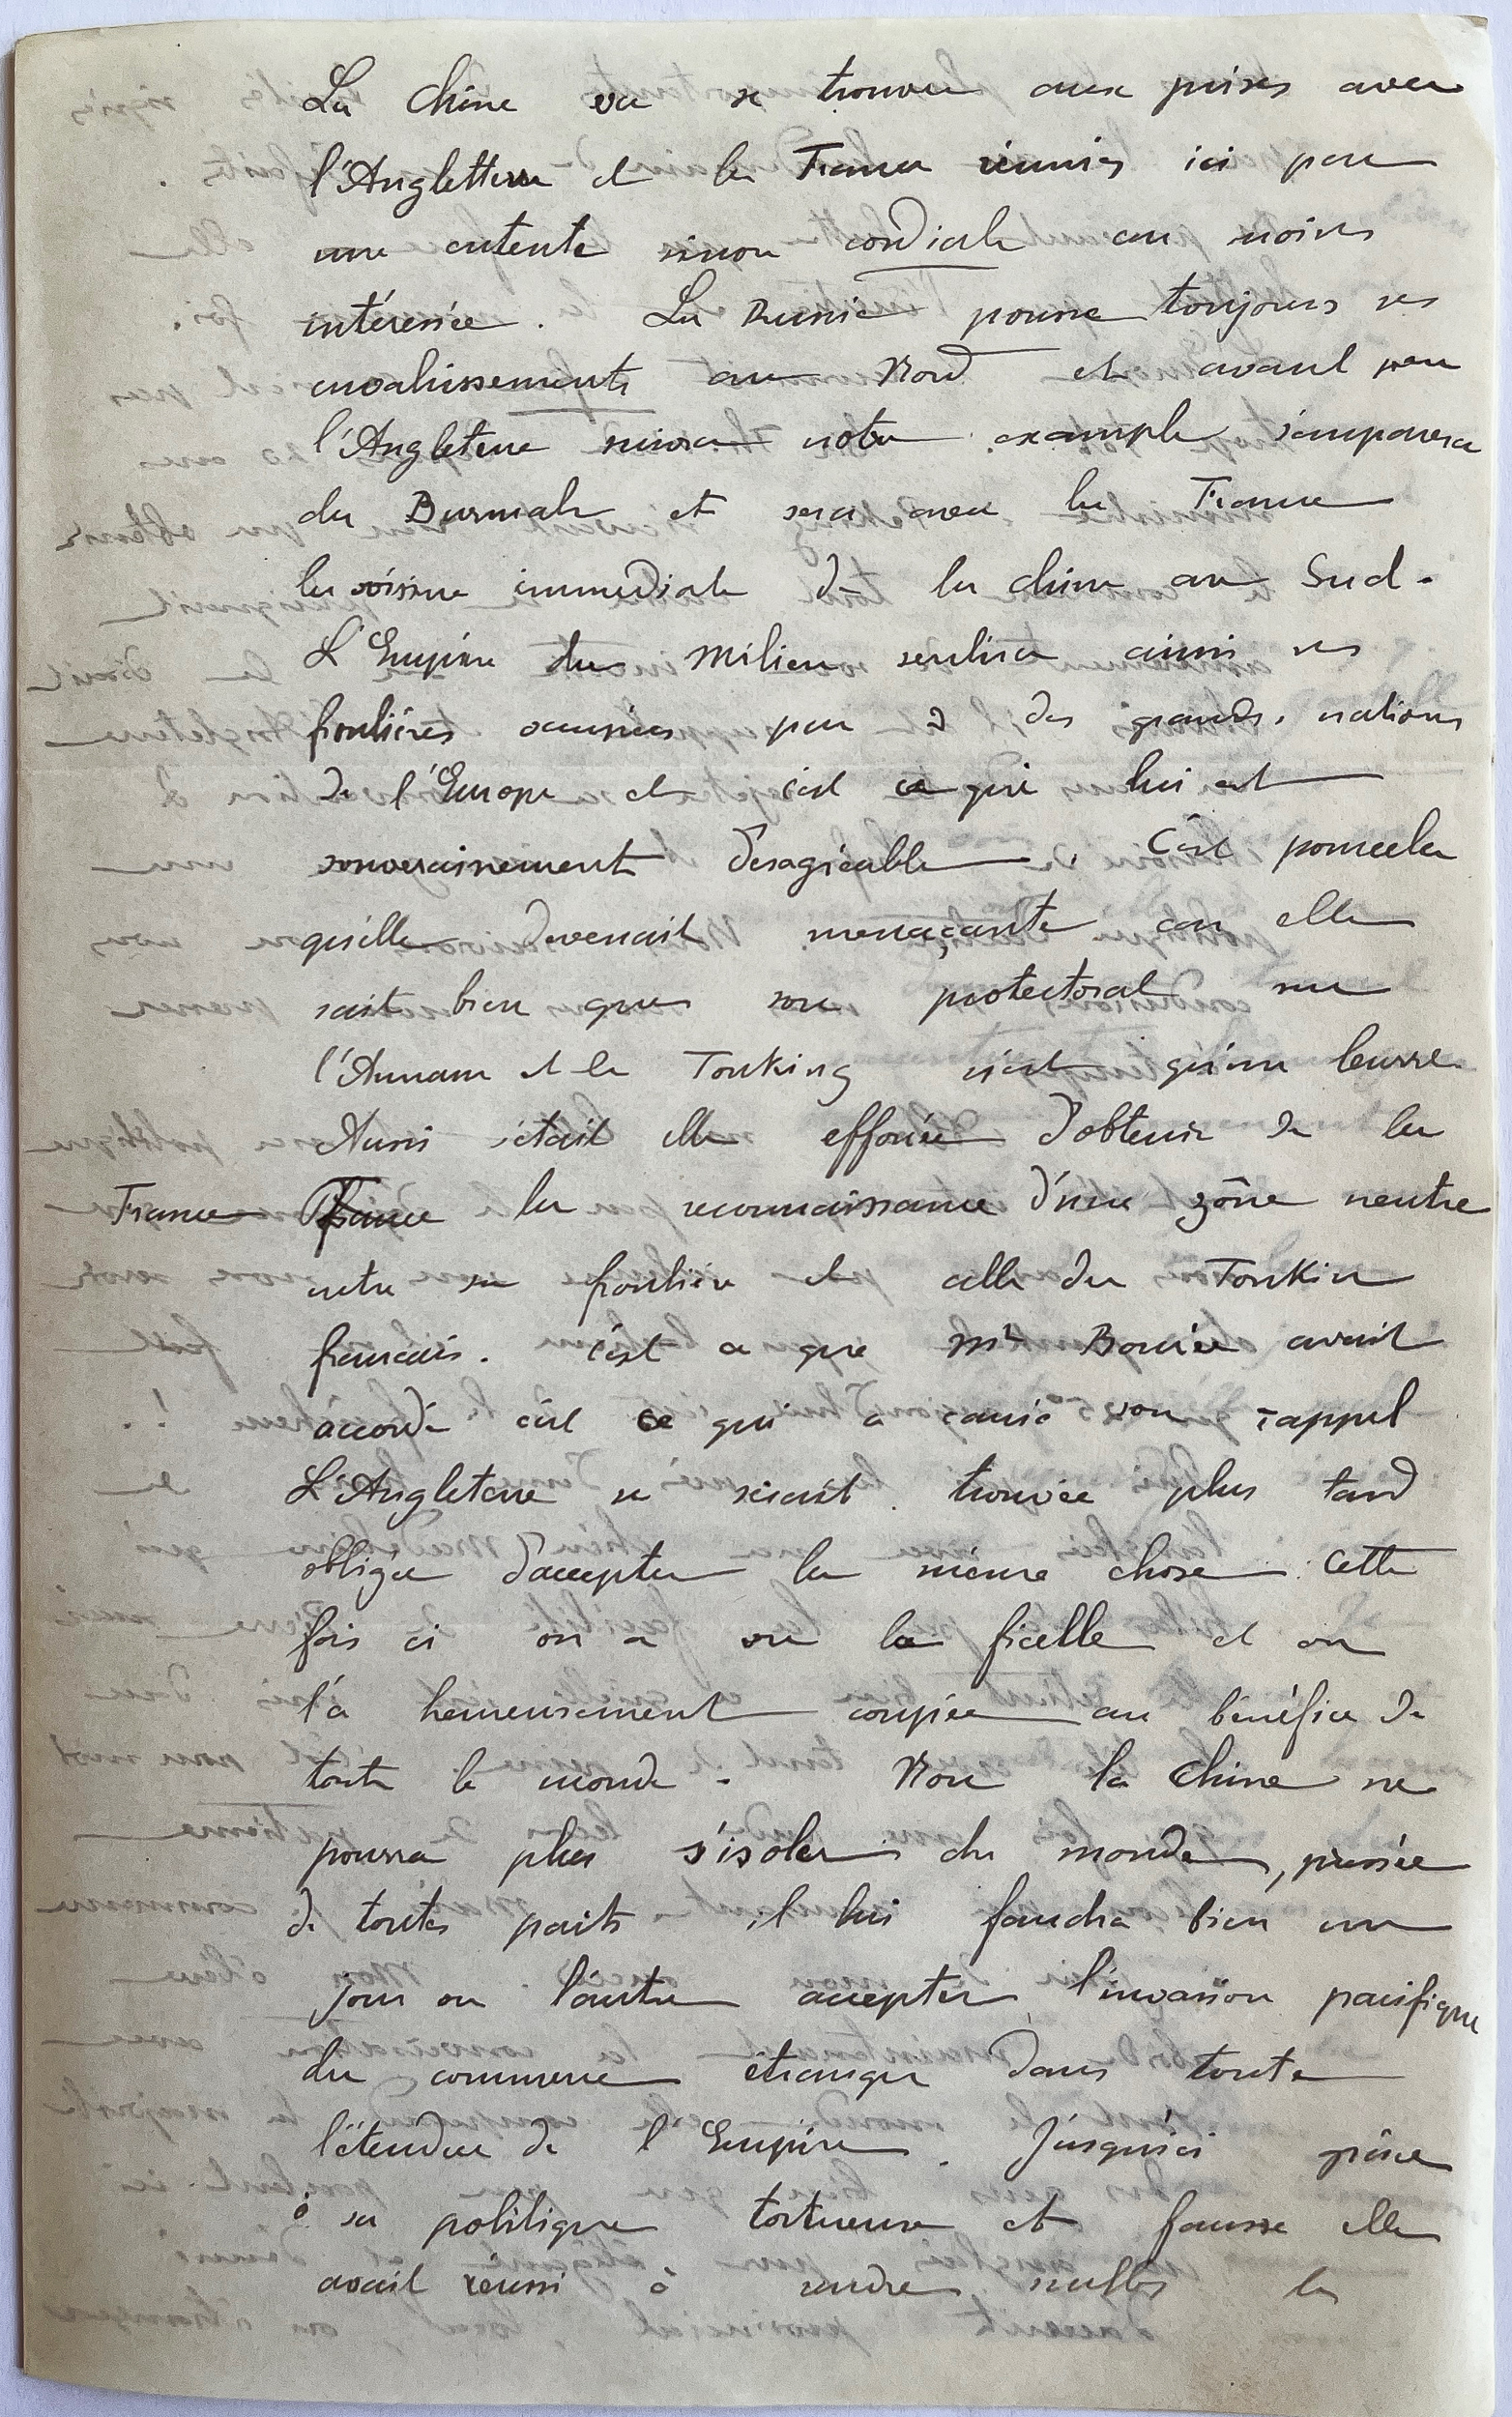 La Chine va se trouver aux prises avec
l'Angletterre et la France réunies ici par
une entente sinon cordiale au moins
intéressée. La Russie pousse toujours ses
envahissements au Nord et avant peu
l'Angleterre suivra notre exemple s'emparera
du Burmah et sera avec la France
la voisine immédiate de la Chine au Sud.
L'Empire du Milieu sentira ainsi ses
frontières par 3 des grandes nations
de l'Europe et c'est ce qui lui est
souverainement désagréable. C'est pour cela
qu'elle devenait menaçante car elle
sait bien que son protectorat sur
l'Annam et le Tonking n'est qu'un leurre
Aussi s'était elle efforcée d'obtenir de la
France France la reconnaissance d'une zône neutre
entre sa frontière et celle du Tonkin
français. C'est ce que Mr Bourée avait
accordé c'est ce qui a causé son rappel
L'Angleterre se serait trouvée plus tard
obligée d'accepter la même chose. Cette
fois ci on a vu la ficelle et on
l'a heureusement coupée au bénéfice de
tout le monde. Non la Chine ne
pourra plus s'isoler du monde, pressée
de toutes parts il lui faudra bien un
jour ou l'autre accepter l'invasion pacifique
du commerce étranger dans toute
l'étendue de l'Empire. Jusqu'ici grâce
à sa politique tortueuse et fausse elle
avait réussi à rendre nulles les